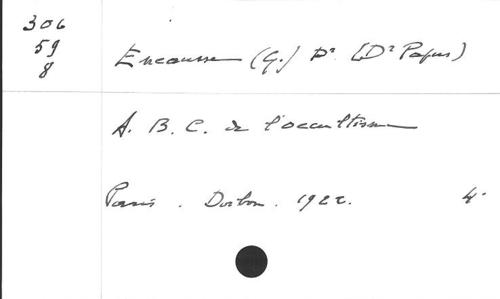 306
59
8
Encausse (G.) Dr [Dr Papus)
A. B. C. de l'occultisme
Paris. Dorbon. 1922. 4°